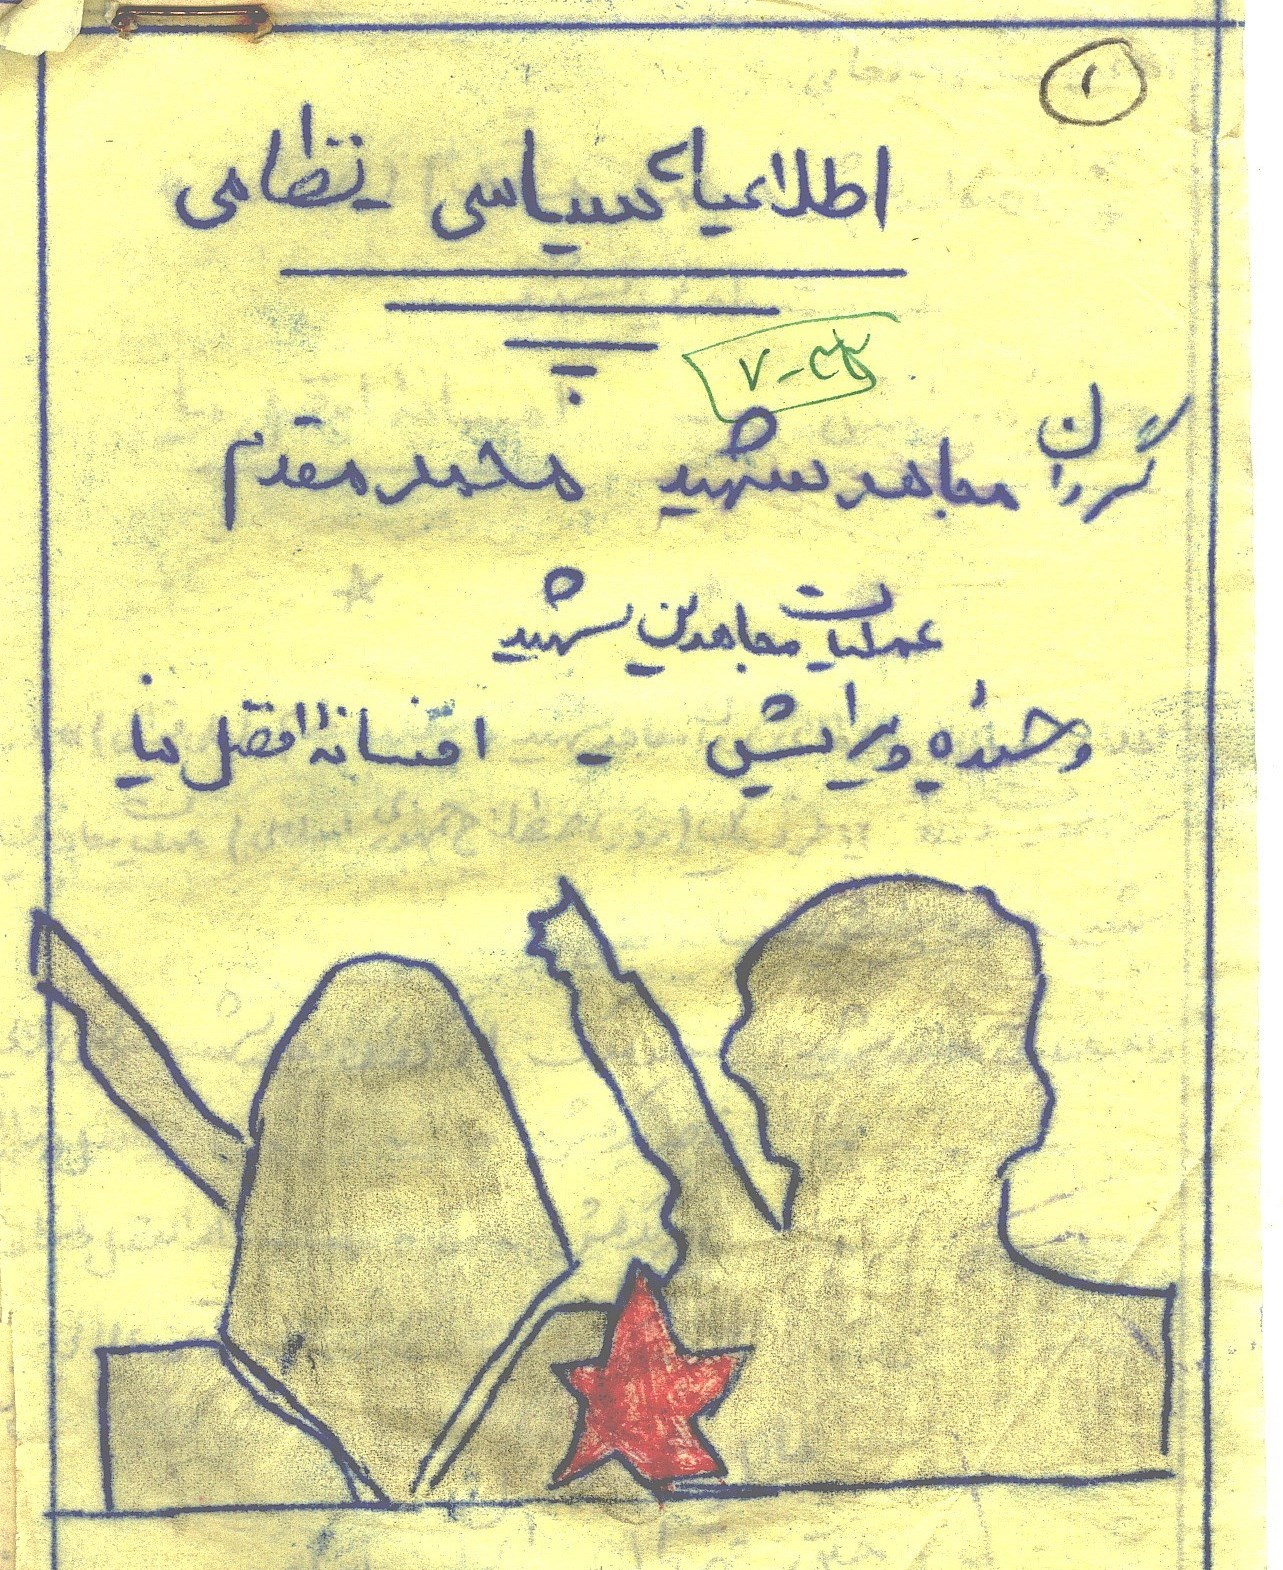 ۱
اطلاعیهٔ سیاسی - نظامی
۷-۳۴
گردان مجاهد شهید محمد مقدم
عملیات مجاهدین شهید
وحیده ویرایش - افسانه افضل نیا